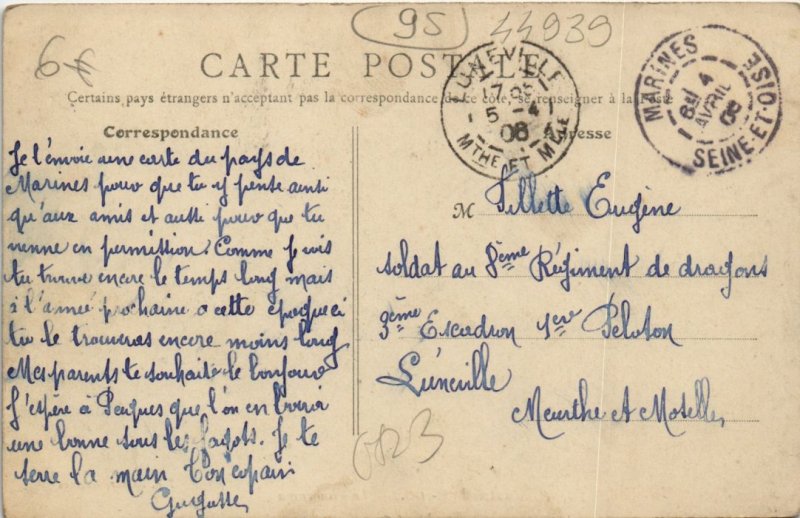 6€
95
44939
CARTE POSTALE
Certains pays étrangers n'acceptant pas la correspondance de ce côté, se renseigner à la Poste
Correspondance
Je t'envoie une carte du pays de
Marines pour que tu y pense ainsi
qu'aux amis et aussi pour que tu
vienne en permission. Comme je vois
tu trouve encore le temps long mais
à l'année prochaine a cette époque ci
tu le trouveras encore moins long
Mes parents te souhaite le bonjour
J'espère à Pâques que l'on en boira
une bonne sous les fagots. Je te
serre la main Ton copain
Gugusse
LUNEVILLE
17
5 -4
08
MTHE ET MLLE
MARINES
4
AVRIL
08
SEINE-ET-OISE
Adresse
M Tillette Eugène
soldat au 8ème Régiment de dragons
3ème Escadron 1ere Peloton
Lunéville
Meurthe et Moselle